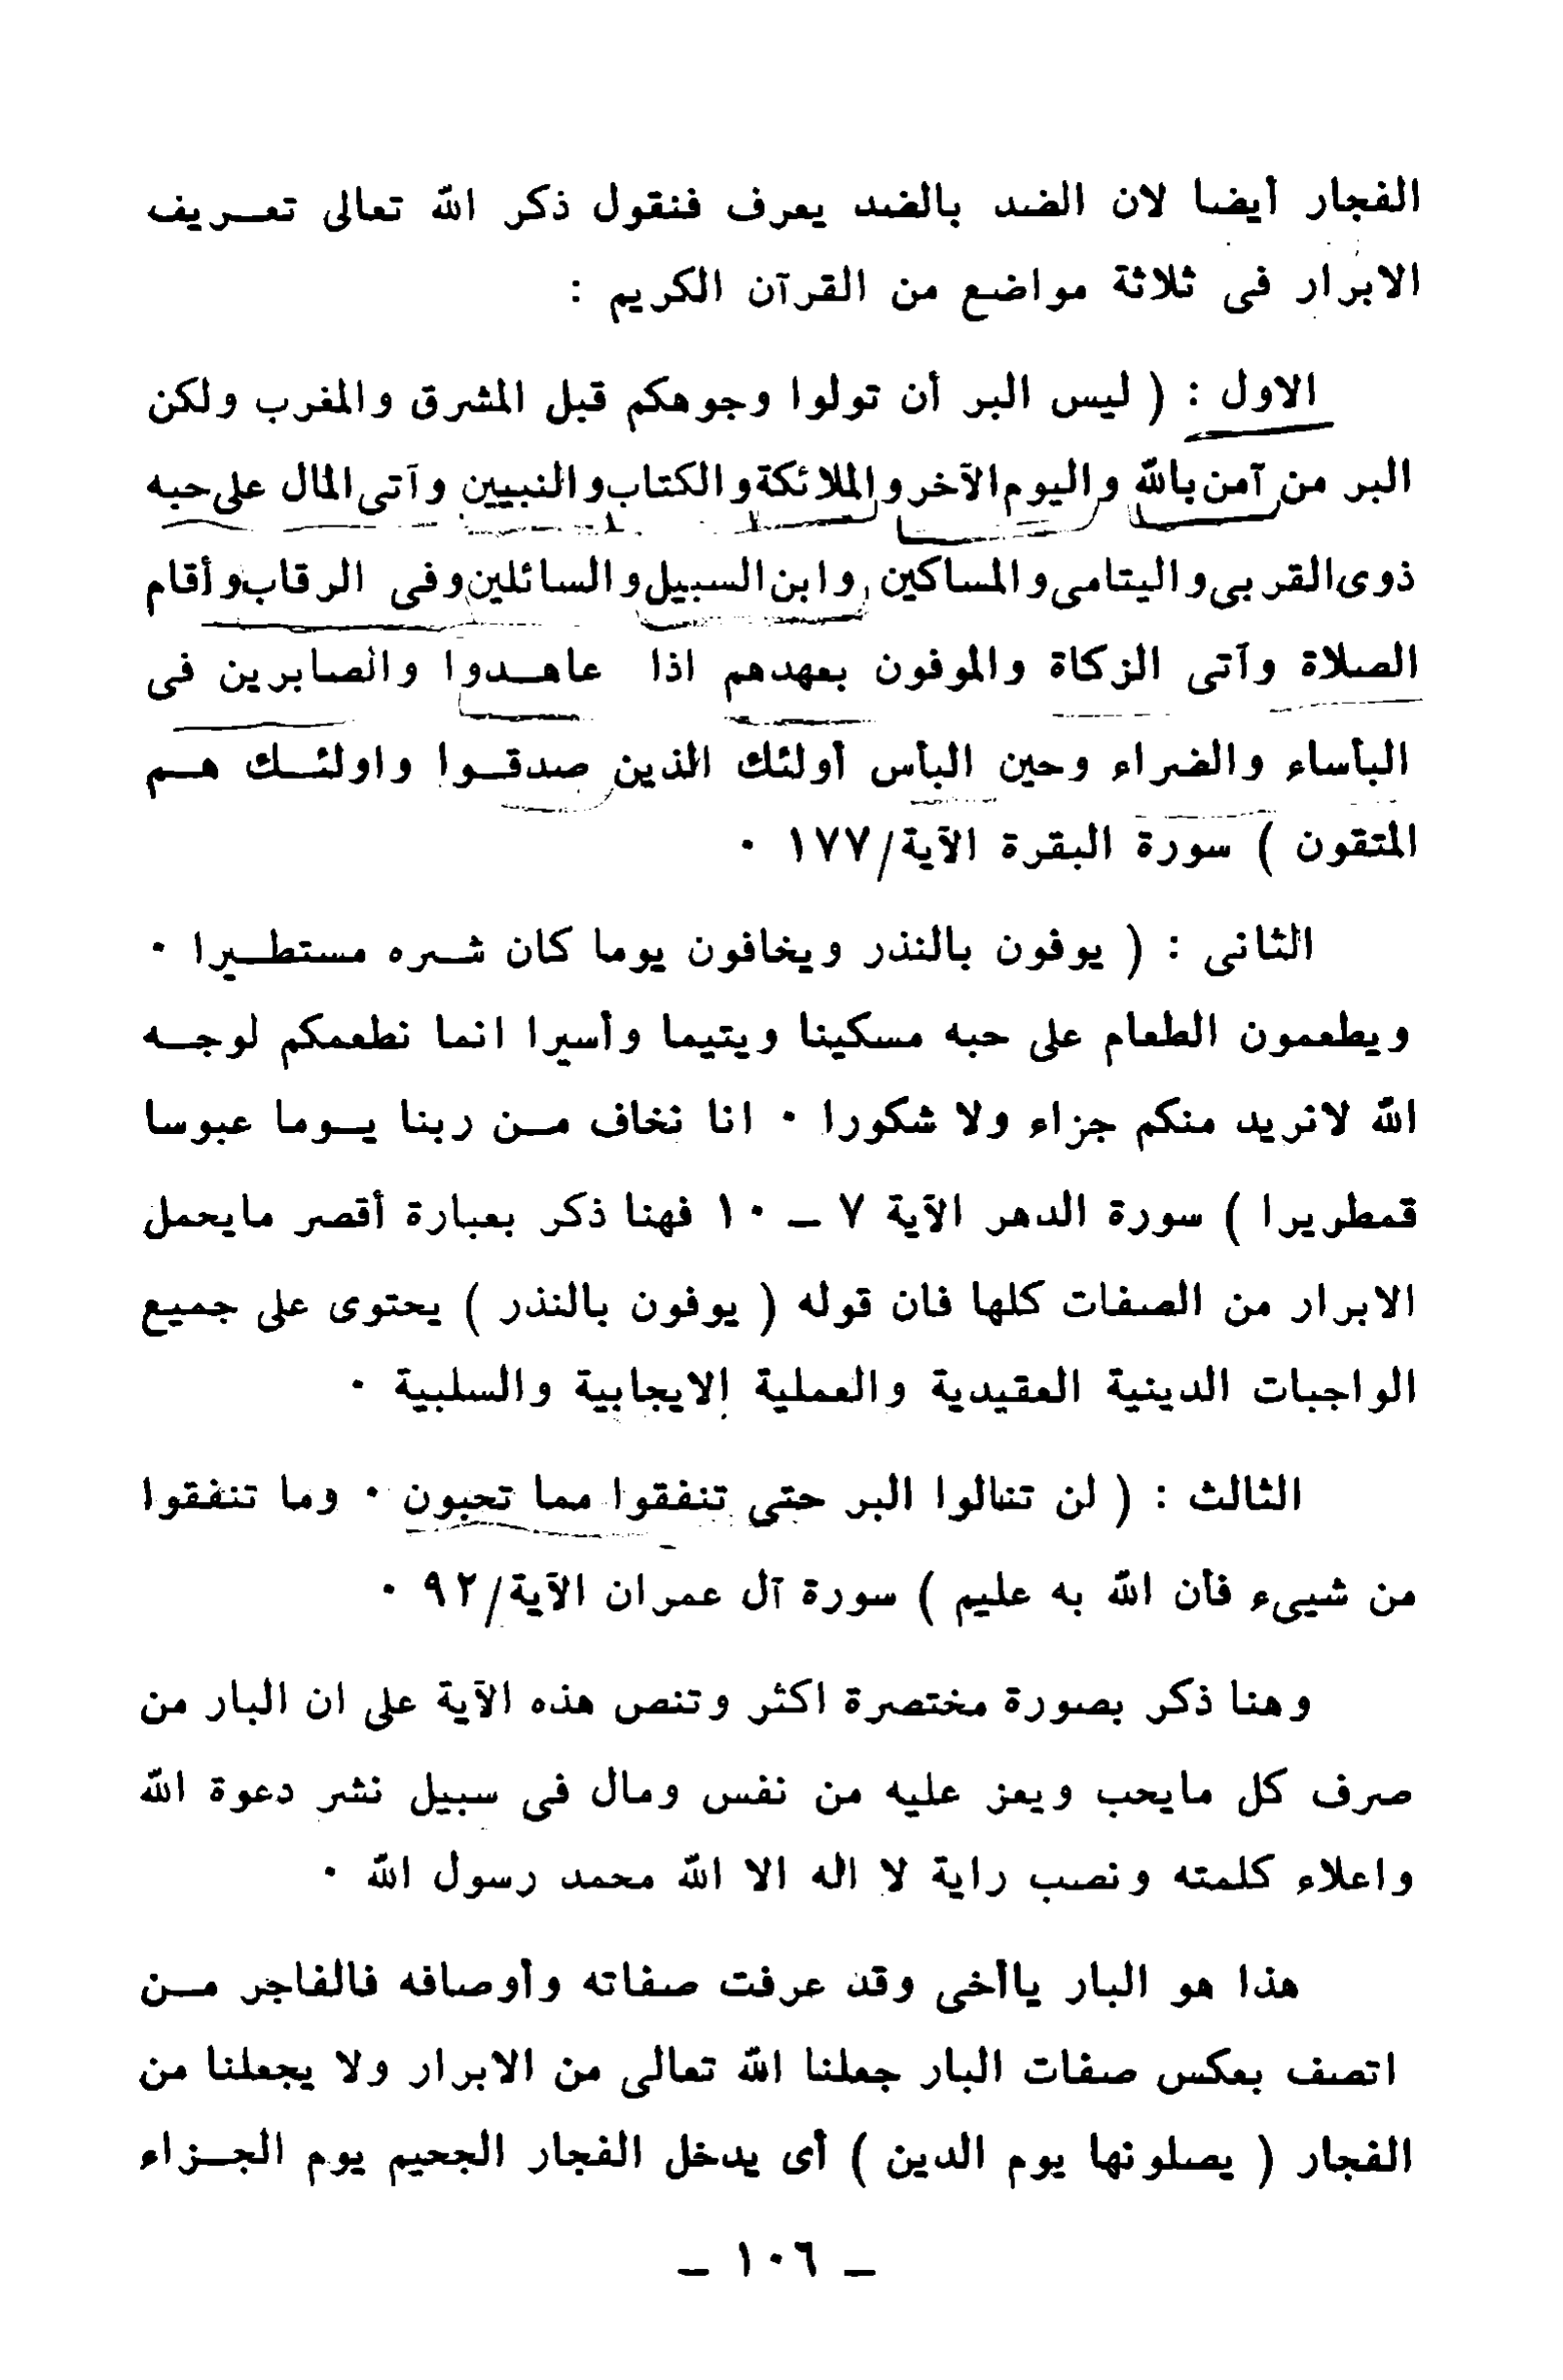 الفجار أيضا لان الضد بالضد يعرف فنقول ذكر الله تعالى تعـريف
الابرار فى ثلاثة مواضع من القرآن الكريم :
الاول : ( ليس البر أن تولوا وجوهكم قبل المشرق والمغرب ولكن
البر من آمن بالله واليوم الآخر والملائكة والكتاب والنبيين وآتى المال على حبه
ذوى القربى واليتامى والمساكين وابن السبيل والسائلين وفى الرقاب وأقام
الصلاة وآتى الزكاة والموفون بعهدهم اذا عاهـدوا والصابرين فى
البأساء والضراء وحين البأس أولئك الذين صدقـوا واولئـك هـم
المتقون ) سورة البقرة الآية/١٧٧ ٠
الثانى : ( يوفون بالنذر ويخافون يوما كان شـره مستطـيرا ٠
ويطعمون الطعام على حبه مسكينا ويتيما وأسيرا انما نطعمكم لوجـه
الله لانريد منكم جزاء ولا شكورا ٠ انا نخاف مـن ربنا يـوما عبوسا
قمطريرا ) سورة الدهر الآية ٧ ــ ١٠ فهنا ذكر بعبارة أقصر مايحمل
الابرار من الصفات كلها فان قوله ( يوفون بالنذر ) يحتوى على جميع
الواجبات الدينية العقيدية والعملية الايجابية والسلبية ٠
الثالث : ( لن تنالوا البر حتى تنفقوا مما تحبون ٠ وما تنفقوا
من شيىء فأن الله به عليم ) سورة آل عمران الآية/٩٢ ٠
وهنا ذكر بصورة مختصرة اكثر وتنص هذه الآية على ان البار من
صرف كل مايحب ويعز عليه من نفس ومال فى سبيل نشر دعوة الله
واعلاء كلمته ونصب راية لا اله الا الله محمد رسول الله ٠
هذا هو البار ياأخى وقد عرفت صفاته وأوصافه فالفاجر مـن
اتصف بعكس صفات البار جعلنا الله تعالى من الابرار ولا يجعلنا من
الفجار ( يصلونها يوم الدين ) أى يدخل الفجار الجحيم يوم الجـزاء
ــ ١٠٦ ــ